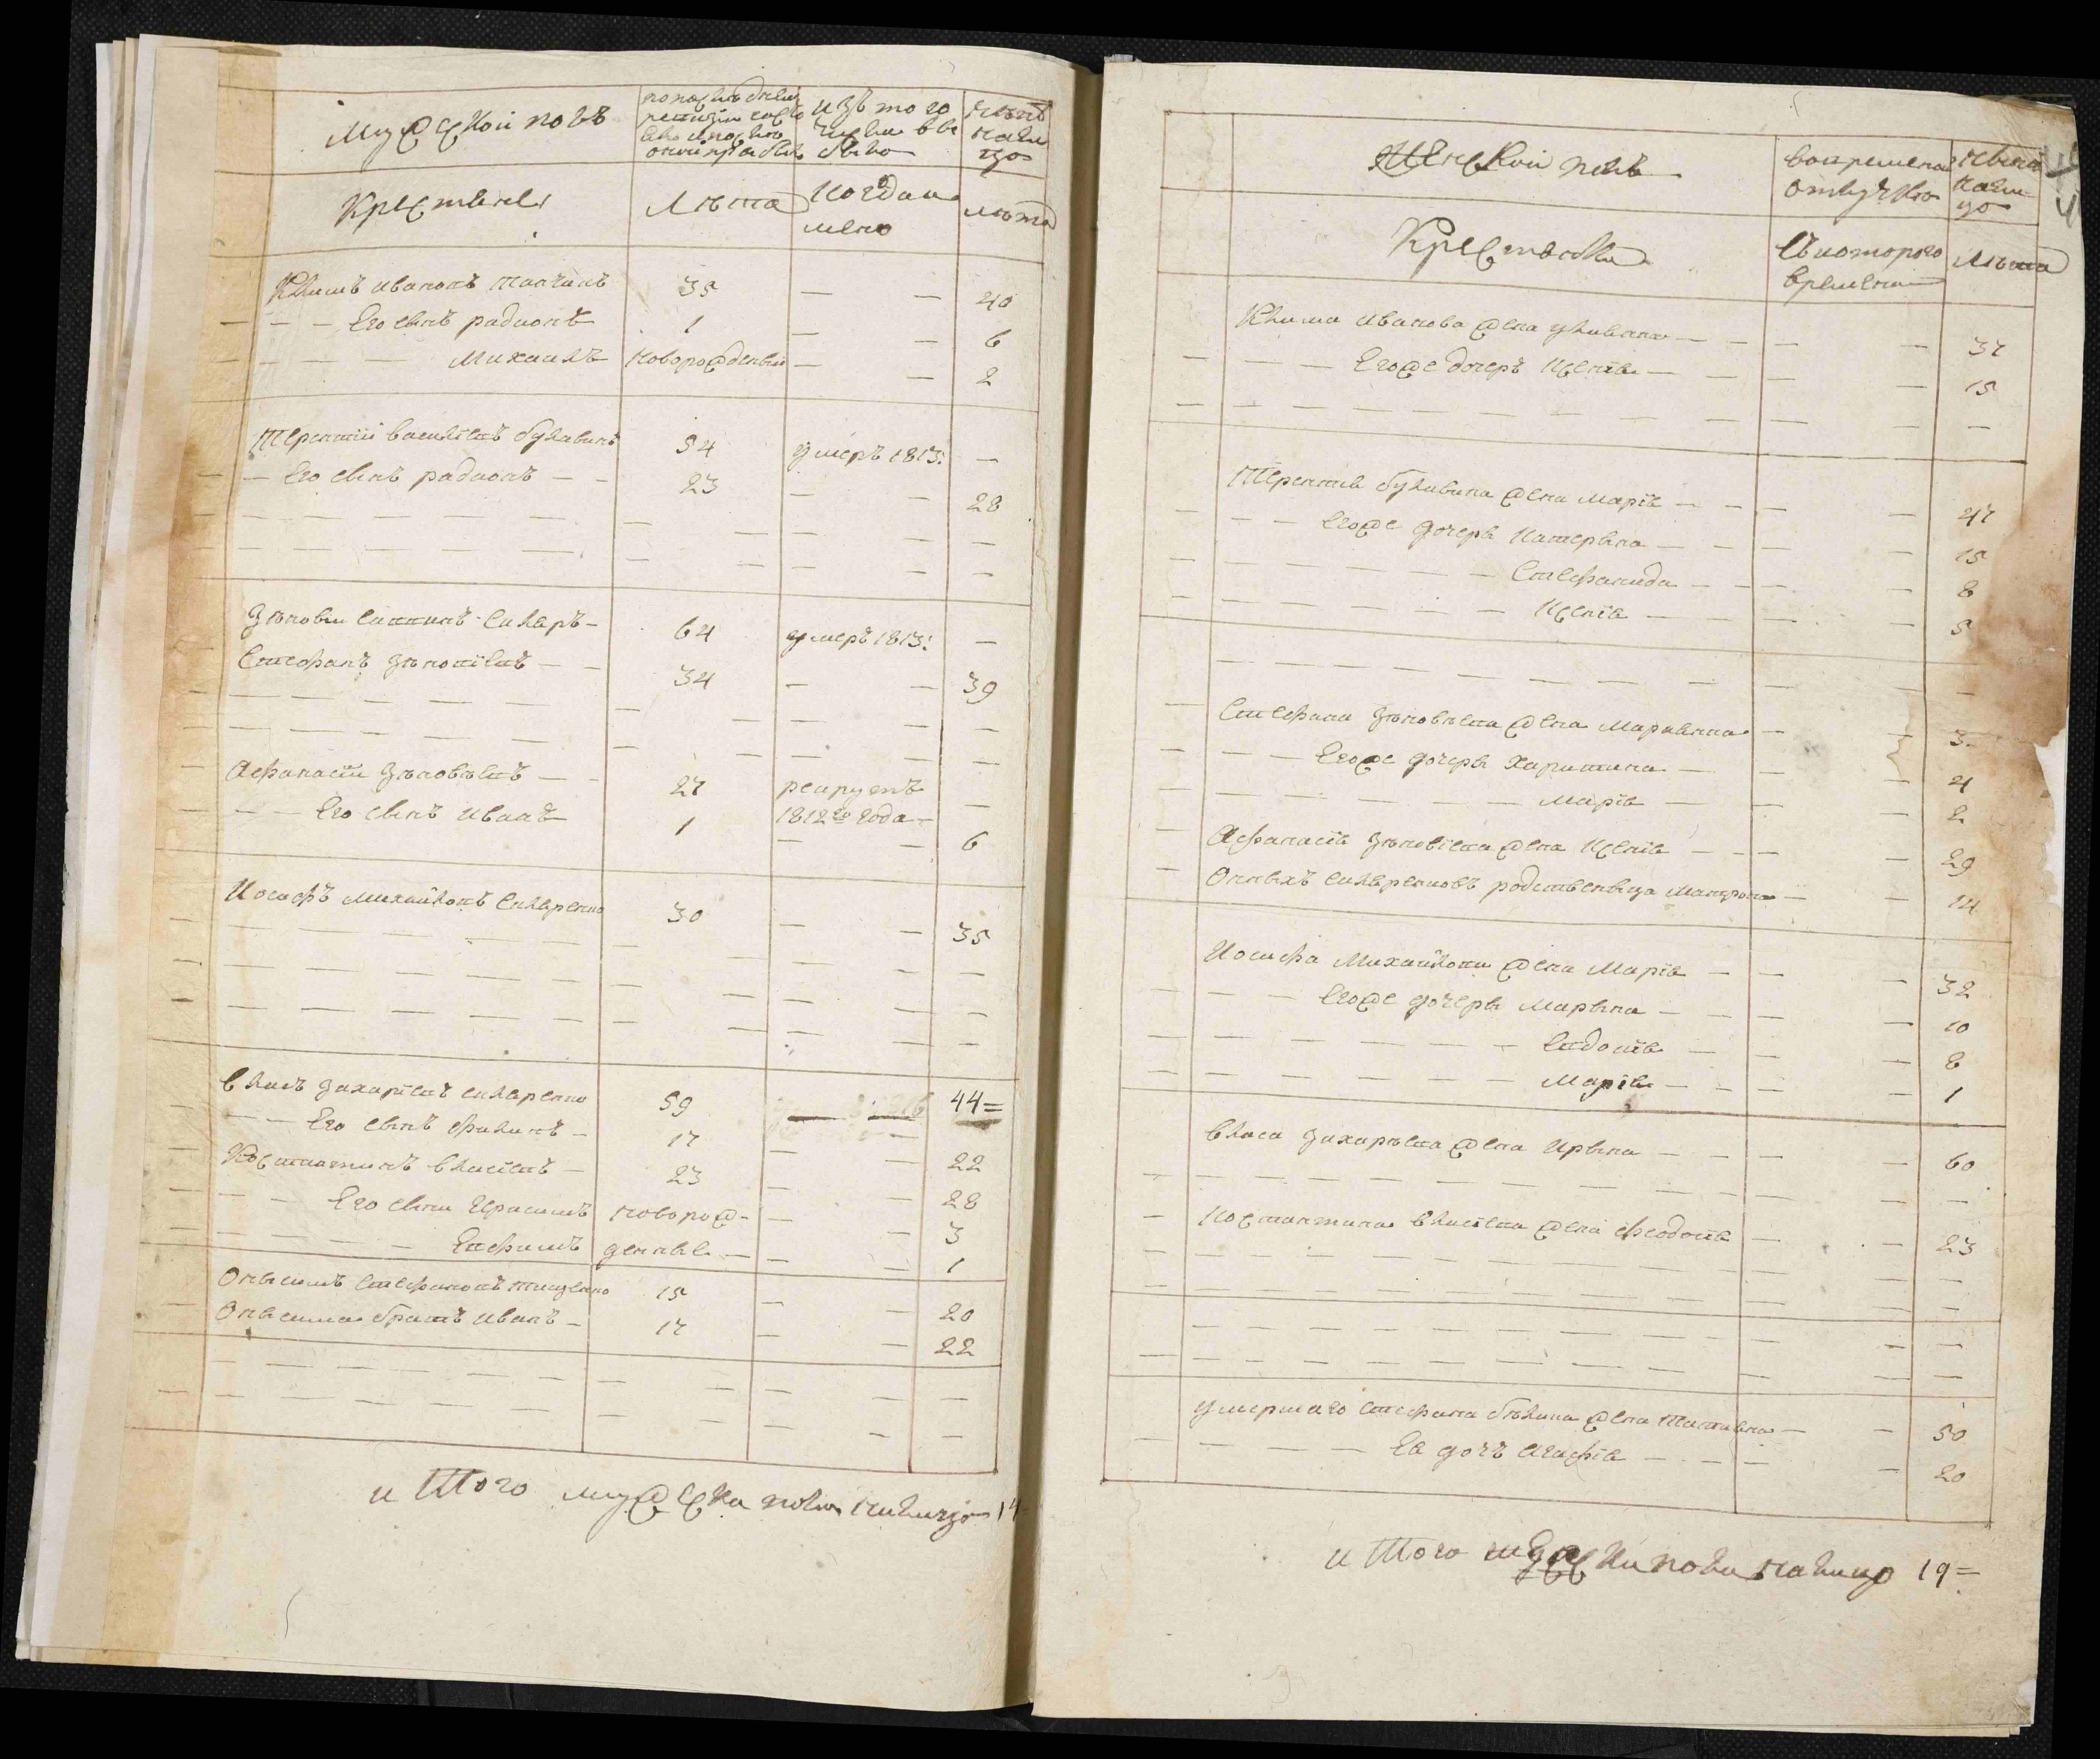 Мужеской полъ
по последней
ревизiи состо
изъ того
числа вы
было
ныне
нали
цо
Крестьяне
Лѣта
когда и
менно
лѣта
Климъ Ивановъ 35 — — 40
— — — Его сынъ Радионъ 1 — — 6
— — — Михаилъ новорожденный — — 2
Терентiй Васильевъ Булавинъ 54 умеръ 1813: —
— Его сынъ Радионъ — — 23 — — 28
Зѣновiй 64 умеръ 1813: —
Стефанъ Зѣновiевъ — — 34 — — 39
Афанасiй Зѣновѣевъ — — 27 рекрутъ —
1812го года —
— — Его сынъ Иванъ 1 — — 6
Иосифъ Михайловъ Скляренко 30 — — 35
Власъ Захарiевъ Скляренко 59 44=
— — Его сынъ Филипъ — 17 — — 22
Костантинъ Власiевъ — 23 — — 28
— — Его сыны Герасимъ новорож- — — 3
— — — — Евфимъ денные — — — 1
Онисимъ Стефановъ Тищенко 15 — — 20
Онисима братъ Иванъ — 17 — — 22
и Того мужеска пола налицо 14
Женской полъ
во временной
отлучке
ныне
нали
цо
Крестьянки
Съ которого
времени
Лѣта
Клима Иванова жена Улияна — — — — 37
— — — Его же дочеръ Ксенiя — — — — 15
Терентия Булавина жена Марiя — — — — 47
— — — Его же дочеры Катерына — — — — 15
— — — — — Стефанида — — — — 8
— — — — — Ксенiя — — — — 5
Стефана Зѣновѣева жена Марианна — — 3
— — Его же дочеры Харитина — — — 4
— — — — — Марiя — — — 2
Афанасiя Зѣновiева жена Ксенiя — — — — 29
Онныхъ Скляренковъ родственица Матрона — — 14
Иосифа Михайлова жена Марiя — — — 32
— — — Его же дочеры Марына — — — — 10
— — — — — Евдокiя — — — 8
— — — — — Марiя — — — 1
Власа Захарьева жена Ирына — — — — 60
Костантина Власiева жена Феодосiя — — 23
умершаго Стефана Бѣлика жена Татияна — — 50
— — — — Ея дочъ Агафiя — — — 20
и Того женска пола налицо 19=